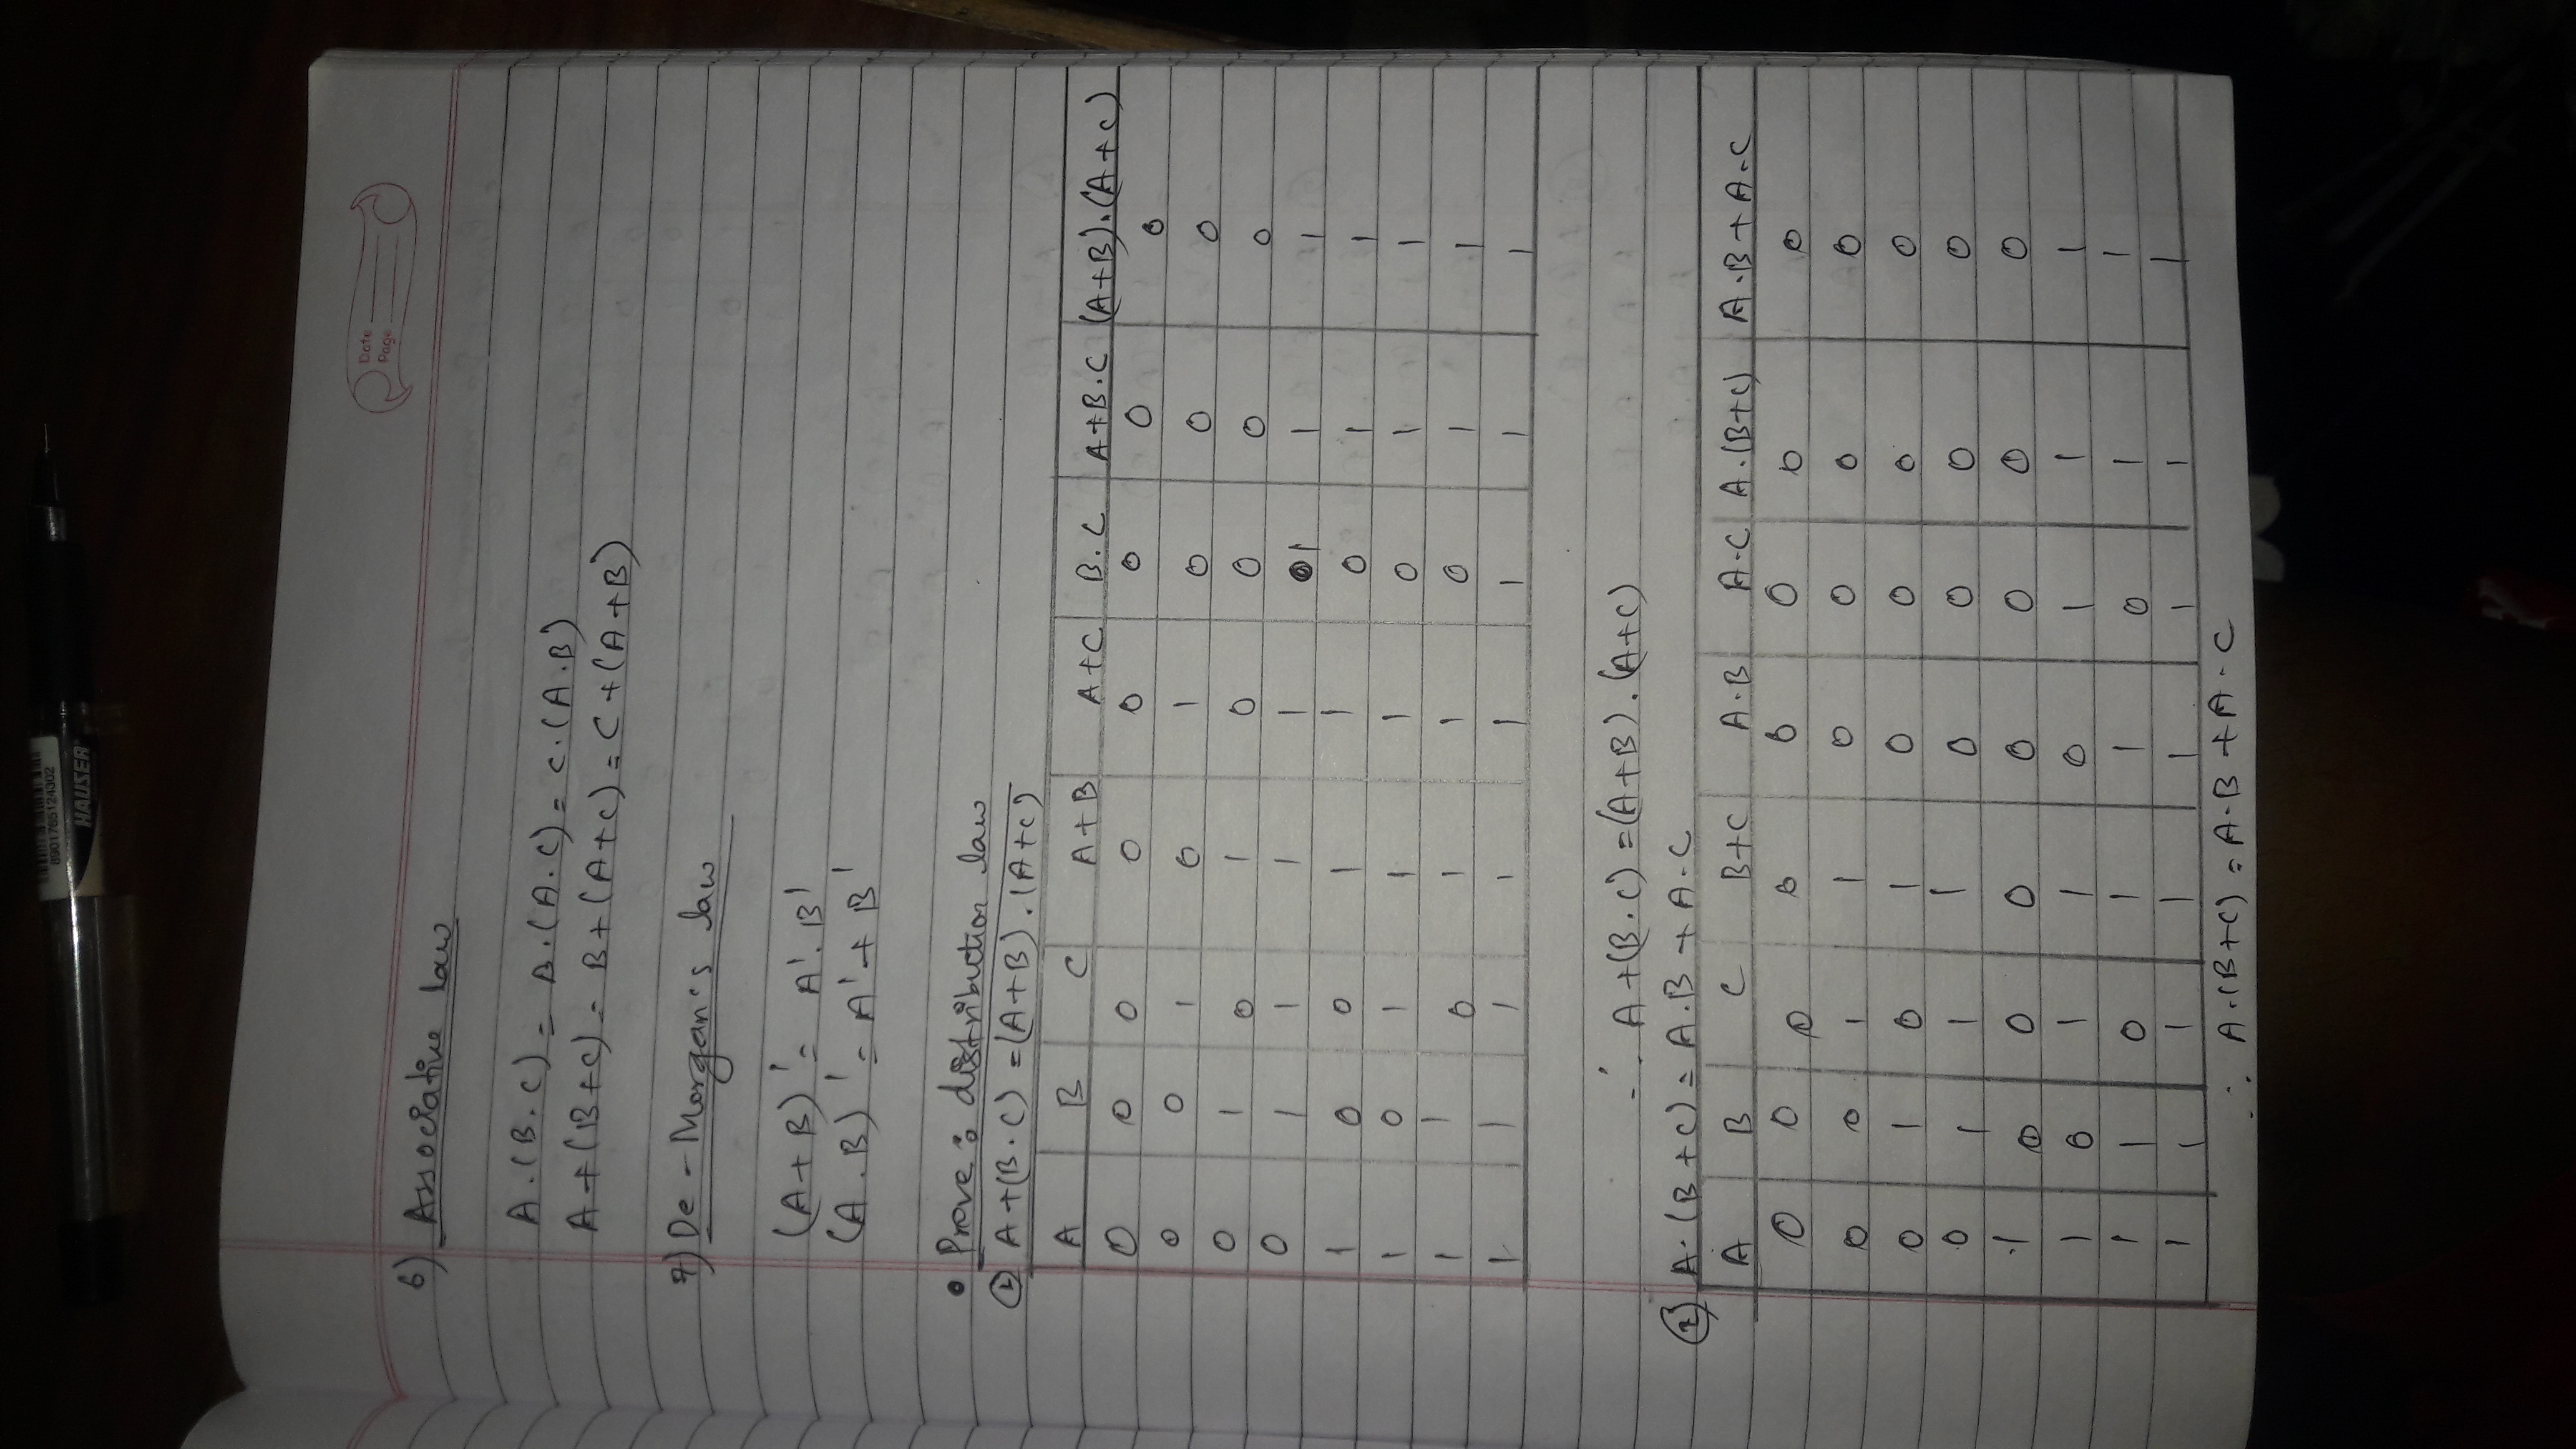 Date
Page
6) Associative law
A.(B.C) = B.(A.C) = C.(A.B)
A+(B+C) = B+(A+C) = C+(A+B)
7) De-Morgan's law
(A+B)' = A'.B'
(A.B)' = A'+B'
• Prove : distribution law
① A+(B.C) = (A+B).(A+C)
A B C A+B A+C B.C A+B.C (A+B).(A+C)
0 0 0 0 0 0 0 0
0 0 1 0 1 0 0 0
0 1 0 1 0 0 0 0
0 1 1 1 1 1 1 1
1 0 0 1 1 0 1 1
1 0 1 1 1 0 1 1
1 1 0 1 1 0 1 1
1 1 1 1 1 1 1 1
∴ A+(B.C) = (A+B).(A+C)
② A.(B+C) = A.B + A.C
A B C B+C A.B A.C A.(B+C) A.B+A.C
0 0 0 0 0 0 0 0
0 0 1 1 0 0 0 0
0 1 0 1 0 0 0 0
0 1 1 1 0 0 0 0
1 0 0 0 0 0 0 0
1 0 1 1 0 1 1 1
1 1 0 1 1 0 1 1
1 1 1 1 1 1 1 1
∴ A.(B+C) = A.B + A.C
8901765124302
HAUSER